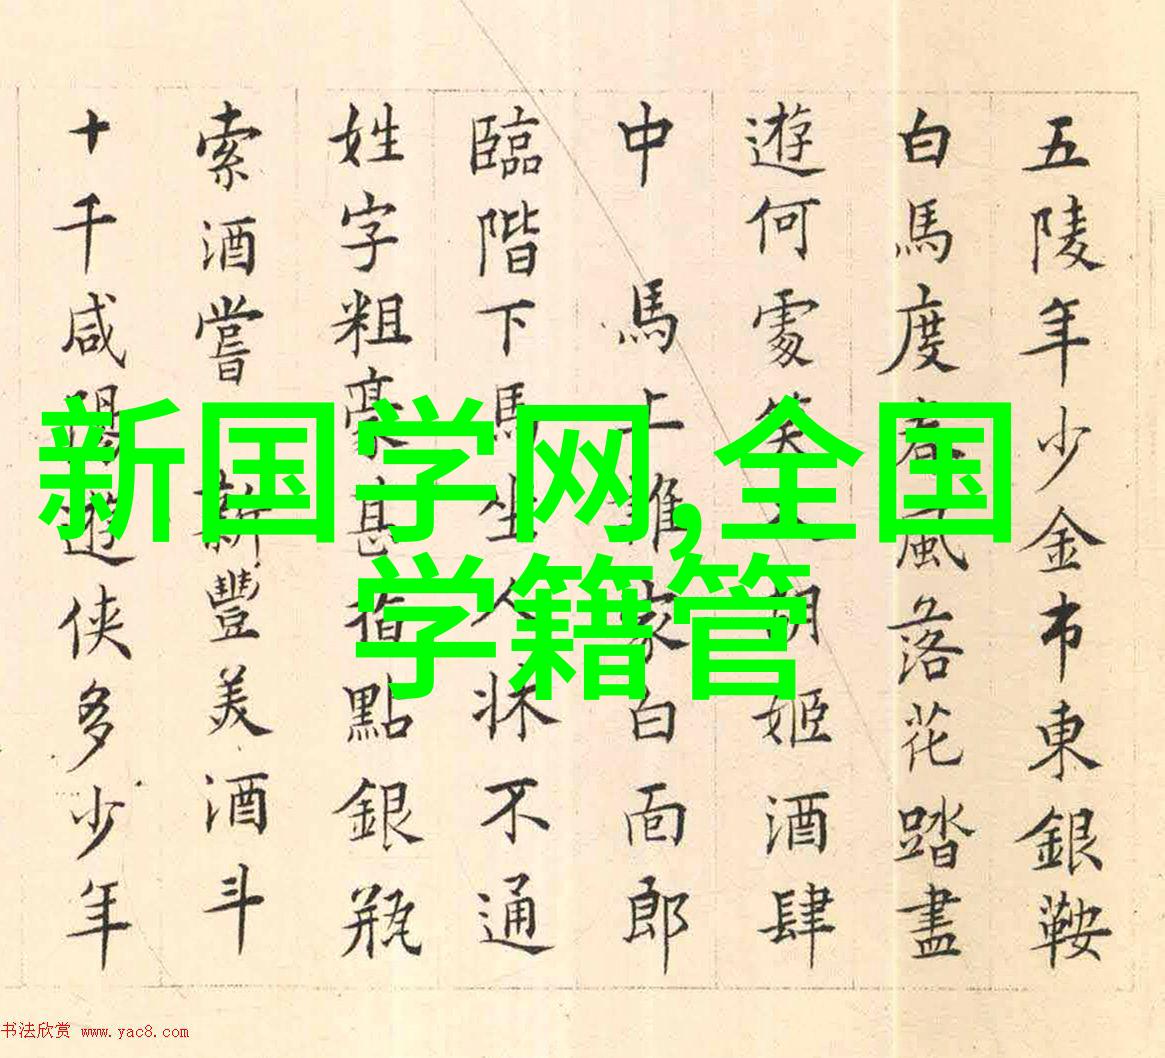 五陵年少金市東銀鞍
白馬度春風落花踏盡
遊何處笑胡姬酒肆
中 馬上誰家白面郎
臨階下馬坐人牀不通
姓字粗豪甚指點銀瓶
索酒嘗 新豐美酒斗
十千咸陽遊俠多少年
新国学网,全国
学籍管
书法欣赏 www.yac8.com